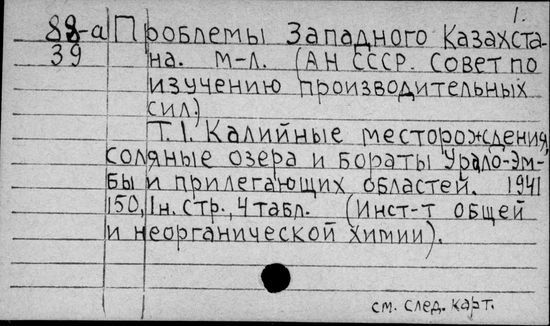 1.
88-а Проблемы Западного Казахста-
39 на. М-Л. (АН СССР. Совет по
изучению производительных
сил.)
Т.1. Калийные месторождения,
соляные озера и бораты Урало-Эм-
бы и прилегающих областей. 1941
150, 1н. стр., 4 табл. (Инст-т общей
и неорганической химии).
см. след. карт.